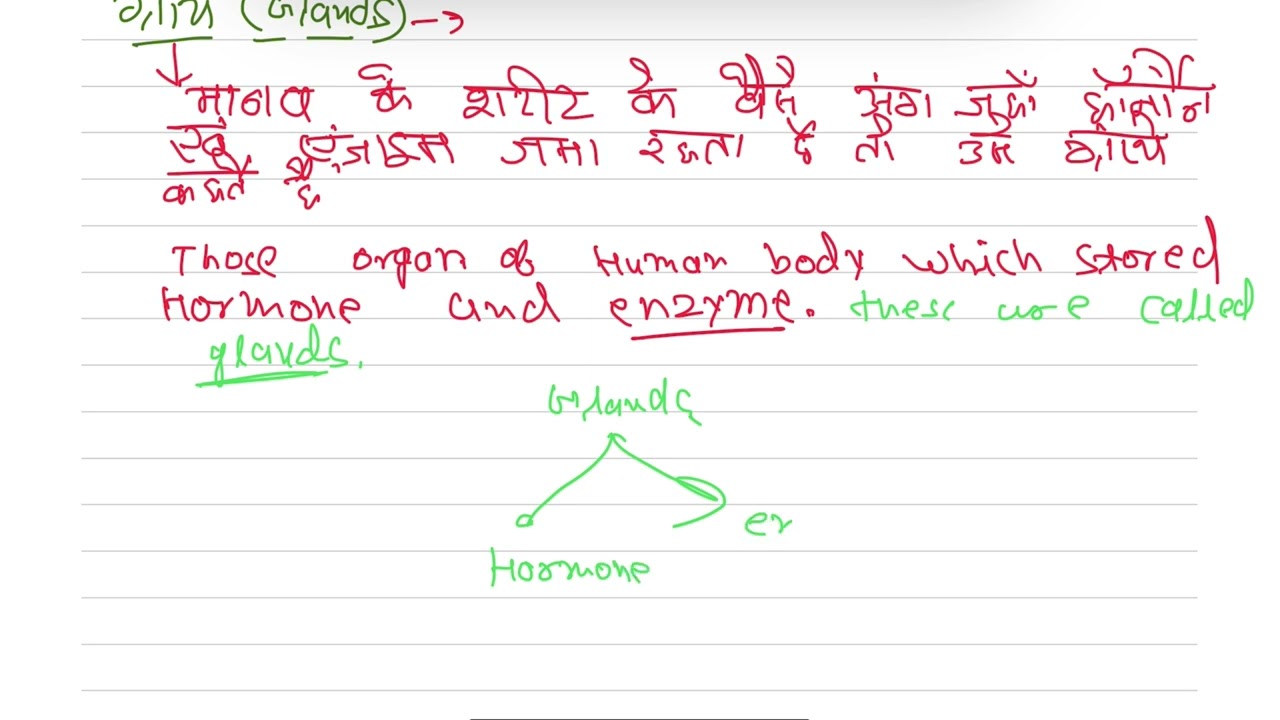 ग्रंथि (Glands) →
मानव के शरीर के वैसे अंग जहाँ हार्मोन
एवं एंजाइम जमा रहता है तो उसे ग्रंथि
कहते हैं
Those organ of Human body which stored
Hormone and enzyme. these are called
glands.
Glands
en
Hormone